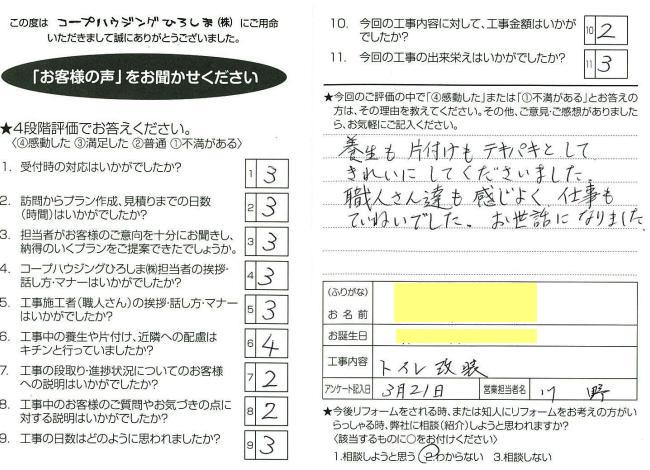 この度は コープハウジングひろしま(株) にご用命
いただきまして誠にありがとうございました。
「お客様の声」をお聞かせください
★4段階評価でお答えください。
〈④感動した ③満足した ②普通 ①不満がある〉
1. 受付時の対応はいかがでしたか? 1 3
2. 訪問からプラン作成、見積りまでの日数
(時間)はいかがでしたか? 2 3
3. 担当者がお客様のご意向を十分にお聞きし、
納得のいくプランをご提案できたでしょうか。 3 3
4. コープハウジングひろしま㈱担当者の挨拶・
話し方・マナーはいかがでしたか? 4 3
5. 工事施工者(職人さん)の挨拶・話し方・マナー
はいかがでしたか? 5 3
6. 工事中の養生や片付け、近隣への配慮は
キチンと行っていましたか? 6 4
7. 工事の段取り・進捗状況についてのお客様
への説明はいかがでしたか? 7 2
8. 工事中のお客様のご質問やお気づきの点に
対する説明はいかがでしたか? 8 2
9. 工事の日数はどのように思われましたか? 9 3
10. 今回の工事内容に対して、工事金額はいかが
でしたか? 10 2
11. 今回の工事の出来栄えはいかがでしたか? 11 3
★今回のご評価の中で「④感動した」または「①不満がある」とお答えの
方は、その理由を教えてください。その他、ご意見・ご感想がありました
ら、お気軽にご記入ください。
養生も 片付けも テキパキとして
きれいに してくださいました。
職人さん達も 感じよく、仕事も
ていねいでした。 お世話に なりました
(ふりがな)
お 名 前
お誕生日
工事内容 トイレ改装
アンケート記入日 3月21日 営業担当者名 川 野
★今後リフォームをされる時、または知人にリフォームをお考えの方がい
らっしゃる時、弊社に相談(紹介)しようと思いますか?
〈該当するものに○をお付けください〉
1.相談しようと思う 2.わからない 3.相談しない